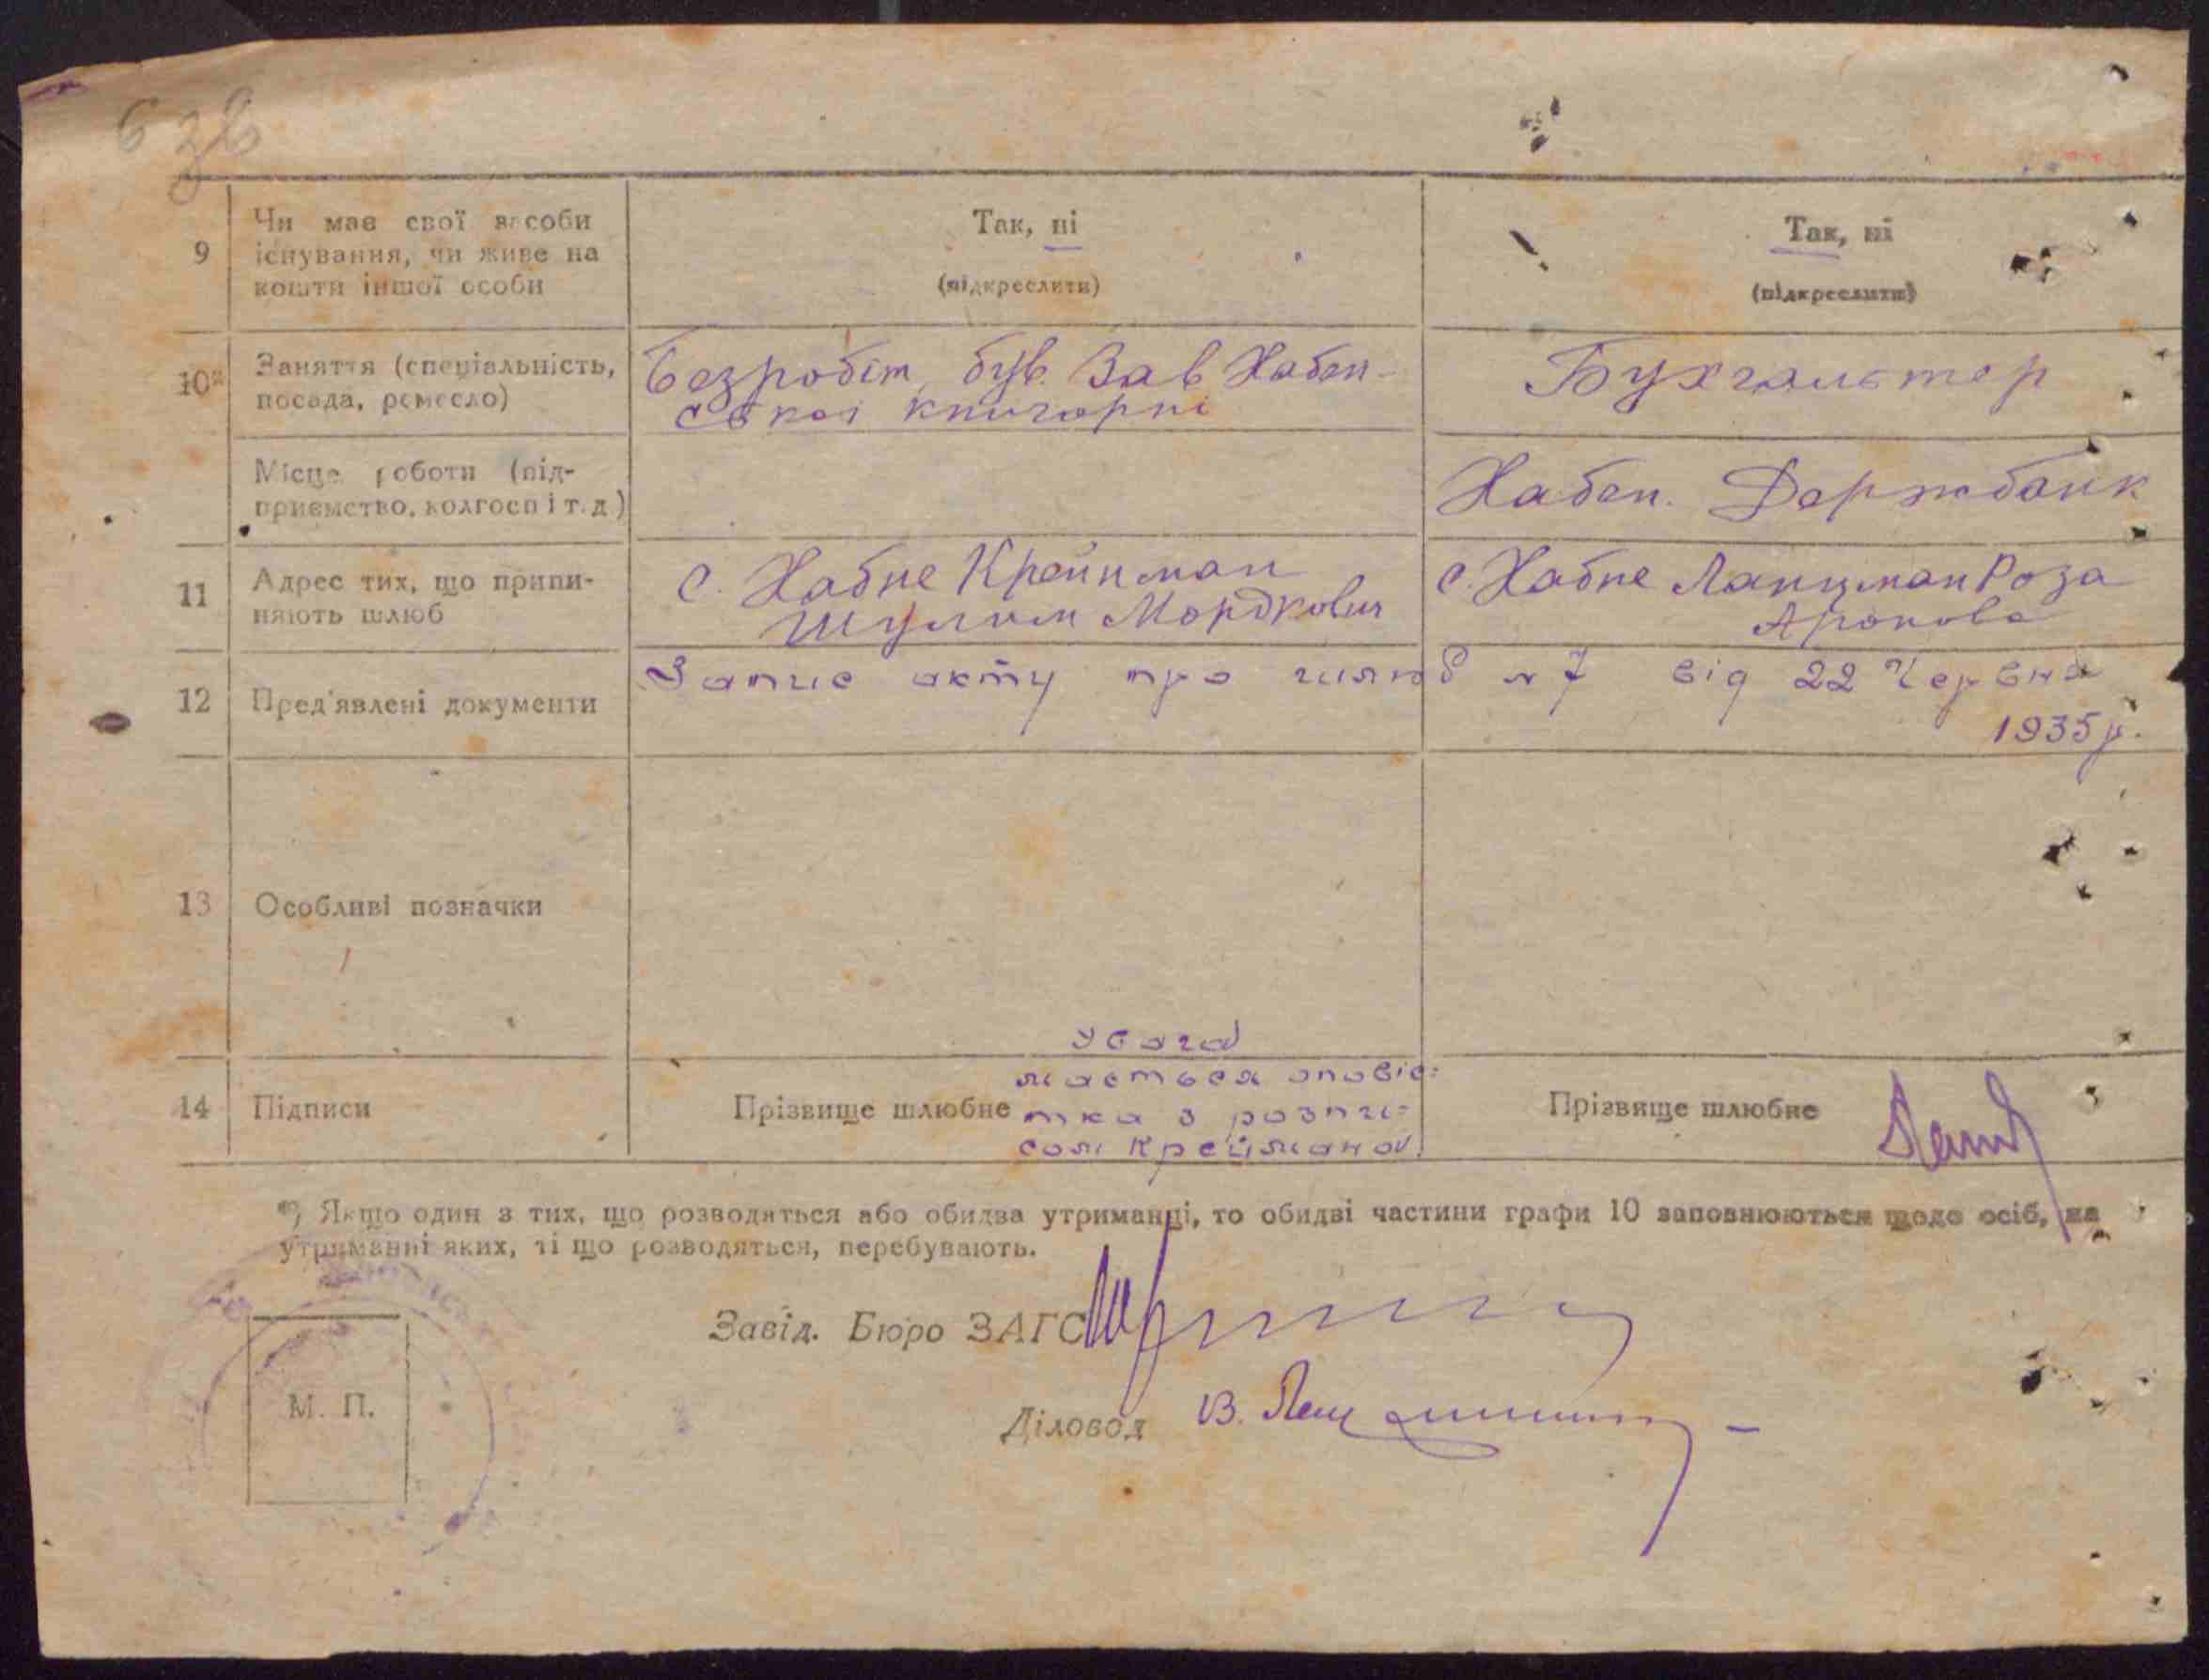 9
Чи має свої засоби
існування, чи живе на
кошти іншої особи
Так, ні
(підкреслити)
Так, ні
(підкреслити)
10*
Заняття (спеціальність,
посада, ремесло)
Безробіт, був. Зав Хабен-
ської книгарні
Бухгальтер
Місце роботи (під-
приємство, колгосп і т. д)
Хабен. Держбанк
11
Адрес тих, що припи-
няють шлюб
с. Хабне Крейнман
Шулим Мордкович
с. Хабне Ланцман Роза
Аронова
12
Пред'явлені документи
Запис акту про шлюб № 7 від 22 Червня
1935 р.
13
Особливі позначки
14
Підписи
Увага
мається оповіс=
Прізвище шлюбне тка з розпи=
сом Крейманом.
Прізвище шлюбне
*) Якщо один з тих, що розводяться або обидва утриманці, то обидві частини графи 10 заповнюються щодо осіб, на
утриманні яких, ті що розводяться, перебувають.
Завід. Бюро ЗАГС
М. П.
Діловод В.